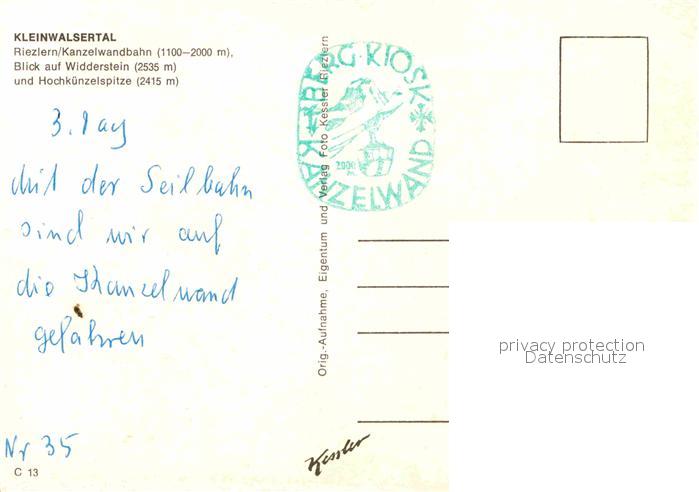 KLEINWALSERTAL
Riezlern/Kanzelwandbahn (1100—2000 m),
Blick auf Widderstein (2535 m)
und Hochkünzelspitze (2415 m)
3. Tag
Mit der Seilbahn
sind wir auf
die Kanzelwand
gefahren
Nr 35
C 13
Orig.-Aufnahme, Eigentum und Verlag Foto Kessler Riezlern
BERG-KIOSK
2000 m
KANZELWAND
Kessler
privacy protection
Datenschutz